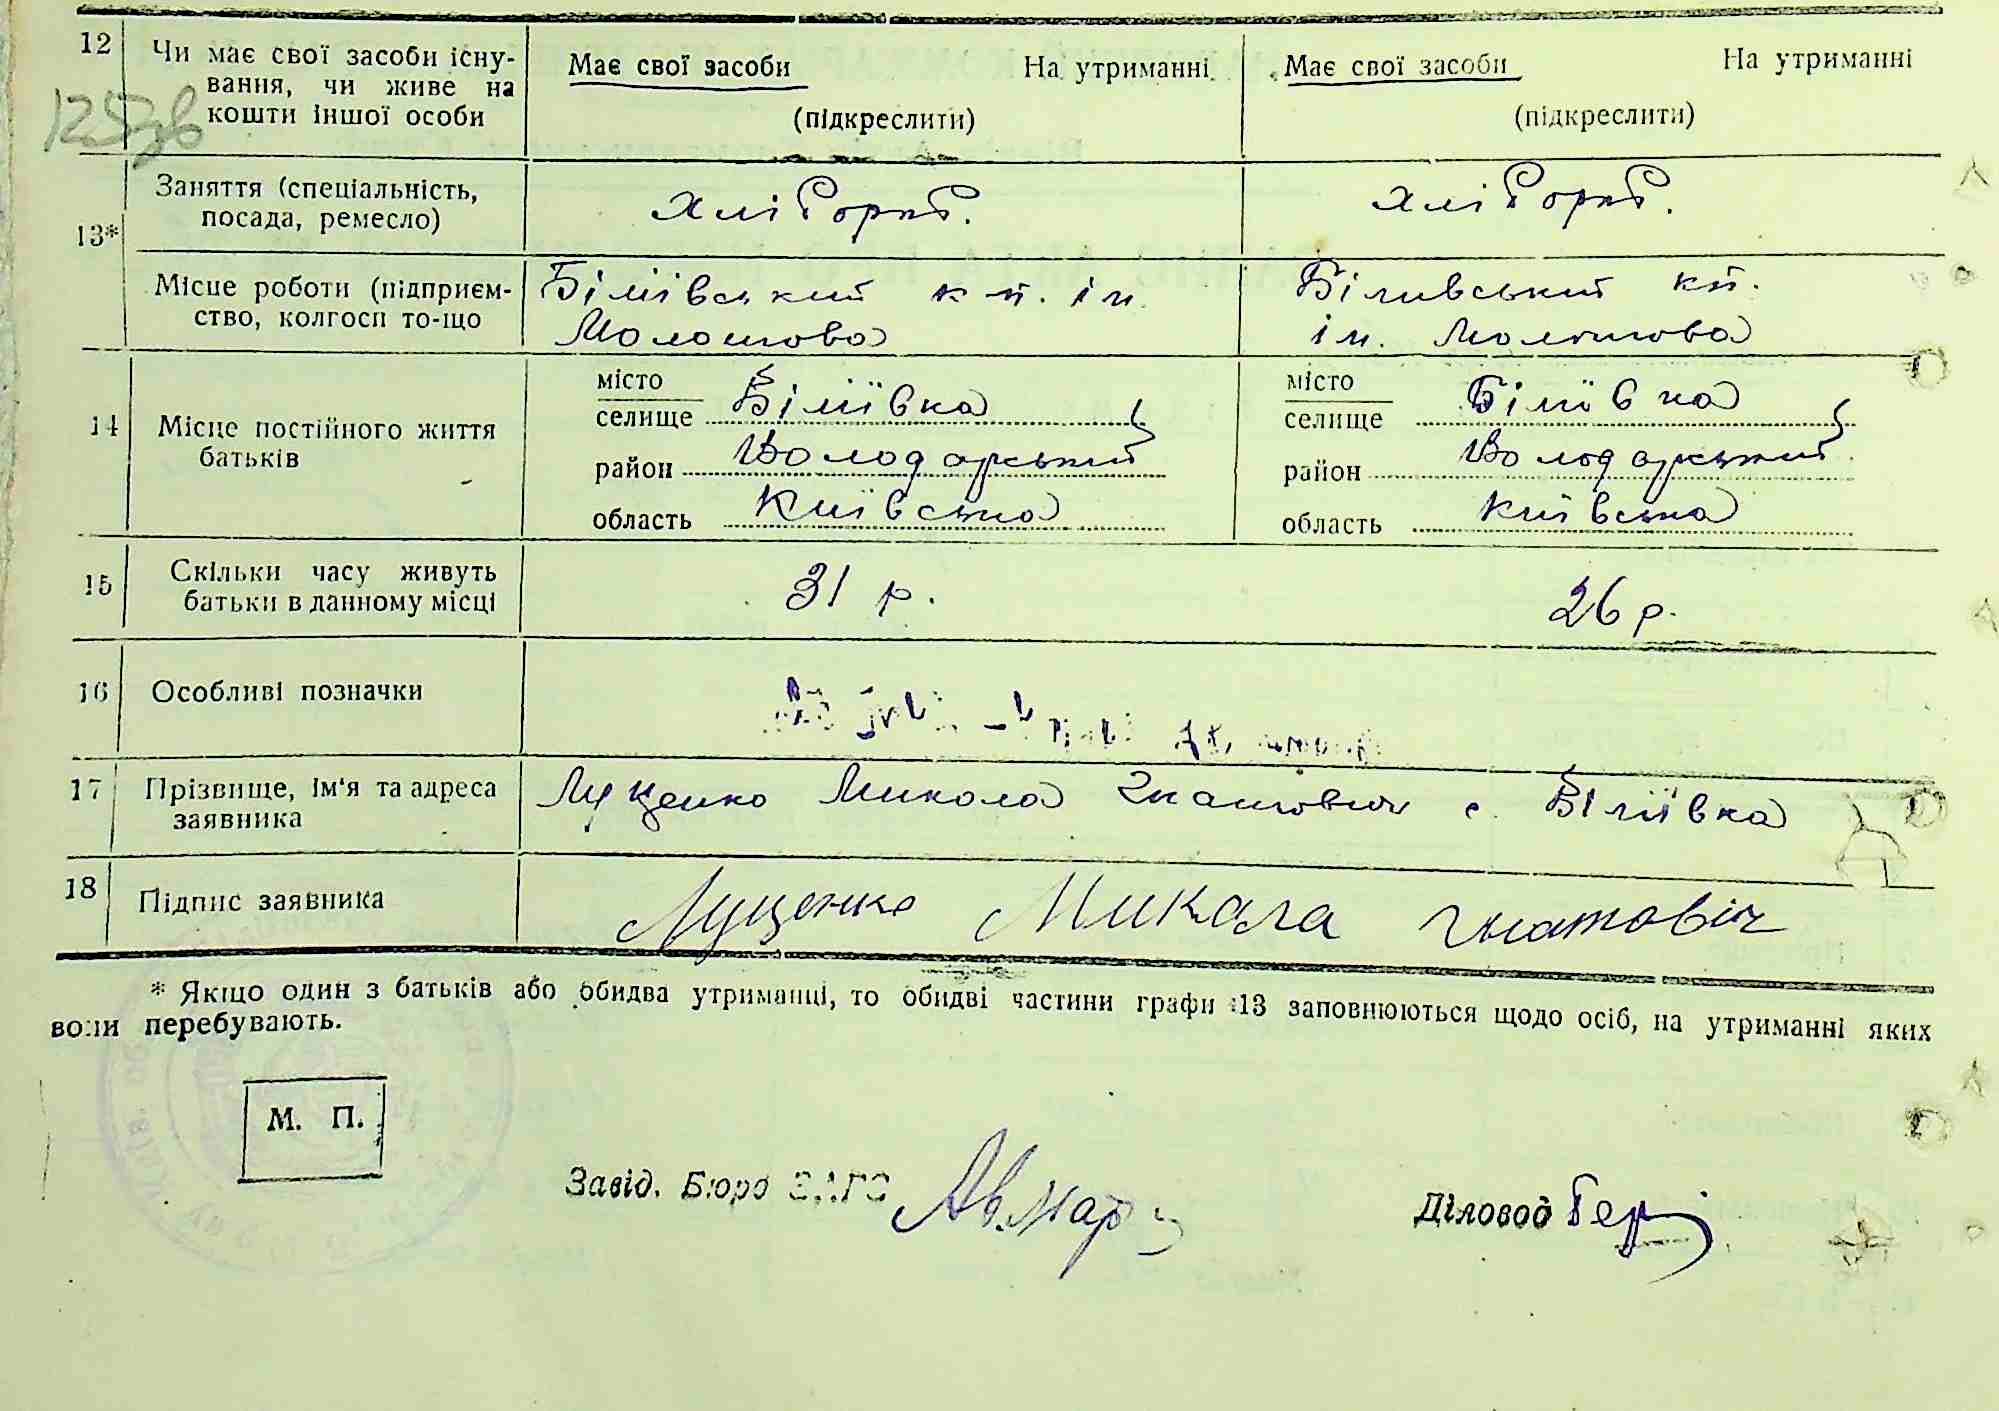 12 Чи має свої засоби існу-
вання, чи живе на
кошти іншої особи
Має свої засоби На утриманні
(підкреслити)
Має свої засоби На утриманні
(підкреслити)
13*
Заняття (спеціальність,
посада, ремесло)
Хлібороб.
Хлібороб.
Місце роботи (підприєм-
ство, колгосп то-що
Біліївський кп. ім.
Молотова
Біливський кп.
ім. Молотова
14 Місце постійного життя
батьків
місто
селище Біліївка
район Володарський
область Київська
місто
селище Біліївка
район Володарський
область Київська
15 Скільки часу живуть
батьки в данному місці
31 р.
26 р.
16 Особливі позначки
17 Прізвище, ім'я та адреса
заявника
Луценко Микола Гнатович с. Біліївка
18 Підпис заявника
Луценко Микала Гнатовіч
* Якщо один з батьків або обидва утриманці, то обидві частини графи 13 заповнюються щодо осіб, на утриманні яких
вони перебувають.
М. П.
Завід. Бюро ЗАГС
Діловод